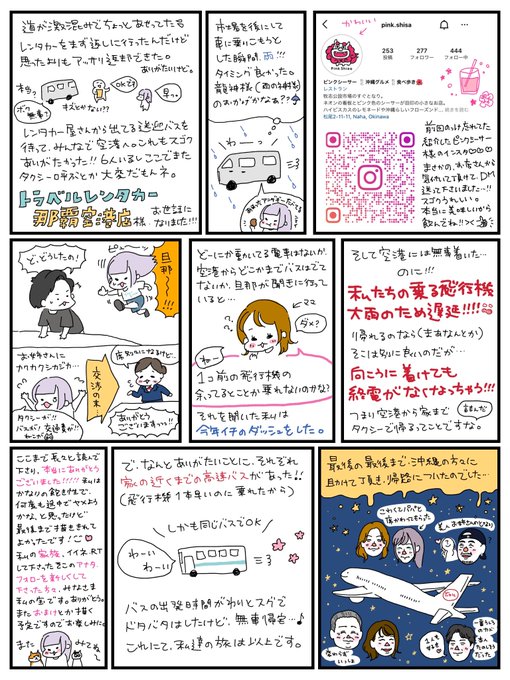 市場を後にして
車に乗りこもうと
した瞬間、雨!!!
タイミング良かった。
龍神様(雨の神様)
のおかげかなぁ??
道が激混みでちょっとあせってたも
レンタカーをまず返しに行ったんだけど
思ったよりもアッサリ返却できた。
ありがたいけど。
本当?
キズとかない??
okです
早っ。
ボク無事で
レンタカー屋さんから出てる送迎バスを
待って、みんなで空港へ。これもスゴク
ありがたかった!!6人いるしここでまた
タクシー呼ぶとか大変だもんネ。
トラベルレンタカー
那覇空港店様
お世話に
なりました!!!
かわいい
pink.shisa
253
投稿
277
フォロワー
444
フォロー中
Pink.Shisa
ピンクシーサー
沖縄グルメ
食べ歩き
レストラン
牧志公設市場のすぐとなり。
ネオンの看板とピンク色のシーサーが目印の小さなお店。
松尾2-11-11, Naha, Okinawa
前回のせ忘れてた
超推しピンクシーサー
様のインスタ♡♡♡
まさかの、お店さんから
気付いて頂けて、DM
送って下さいました…!!
スゴクうれしい。
本当に美味しいから
飲んでネ!!>く
そして空港には無事着いた…
のに!!!
私たちの乗る飛行機
大雨のため遅延!!!!
帰れるのなら(まぁなんとか)
そこは別に良いのだが…
向こうに着けても
終電がなくなっちゃう!!!
つまり空港から家まで
タクシーで帰るってことですな。
詰んだ
どーにか動いてる電車はないか、
空港からどこかまでバスはでて
ないか、旦那が聞きに行って
いると…
ママ
ダメ?
ねー
1つ前の飛行機の
余ってるとことか乗れないのかな?
それを聞いた私は
今年イチのダッシュをした。
ど、どうしたの!
旦那〜!!!
お姉さんに
カクカクシカジカ…
席別々になるけど…
交渉の末
タクシーが!!
バスが!交通費が!!
ねこが
ありがとう
ございまぁっす!!
最後の最後まで、沖縄の方々に
助けて頂き、帰路についたのでした…
で、なんとありがたいことに、それぞれ
家の近くまでの高速バスがあった!!
(飛行機1本早いのに乗れたから)
しかも同じバスでOK
わーい
わーい
バスの出発時間がわりとスグで
ドタバタはしたけど、無事帰宅…♪
これにて、私達の旅は以上です。
ここまで長々と読んで
下さり、本当にありがとう
ございました!!!!!私は
かなりの飽き性で、
何度も途中でやめよう
かな、と思ったけど
最後まで描ききれて
よかったです!♡
私の家族、イイネ、RT
して下さったそこのアナタ、
フォローを新しくして
下さった方々、みなさま
私の宝です。ありがとう。
またおまけとか描く
予定ですのでお楽しみに。
また
みてねー